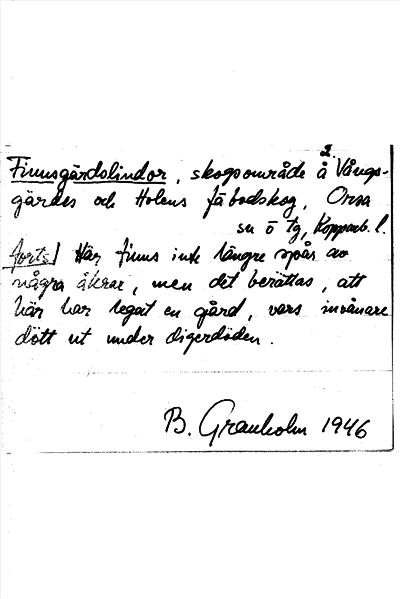 2.
Finnsgårdslindor, skogsområde å Vångs-
gärdes och Holens fäbodskog, Orsa
sn ö tg, Kopparb. l.
forts] Här finns inte längre spår av
några åkrar, men det berättas, att
här har legat en gård, vars invånare
dött ut under digerdöden.
B. Granholm 1946